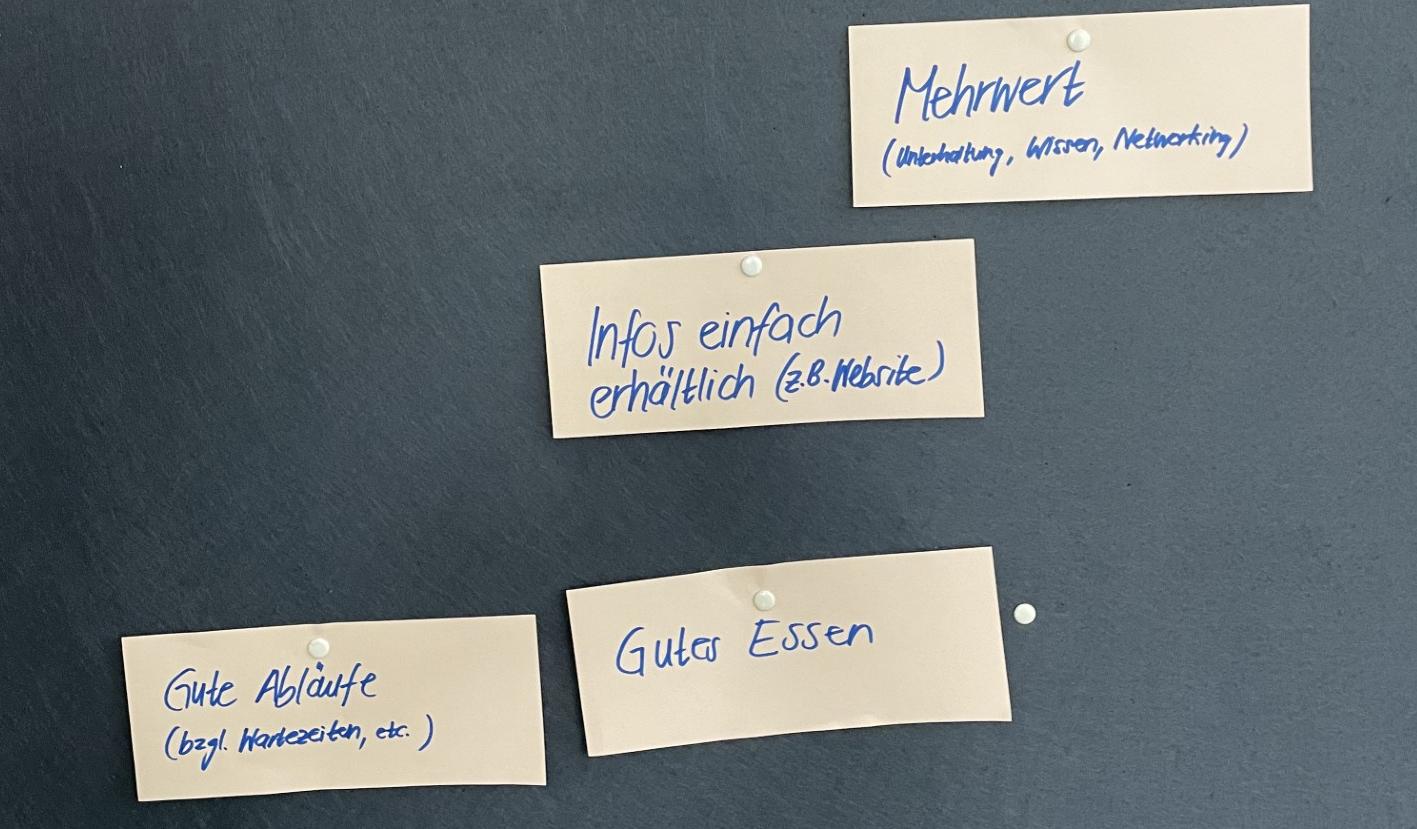 Mehrwert
(Unterhaltung, Wissen, Networking)
Infos einfach
erhältlich (z.B. Website)
Gutes Essen
Gute Abläufe
(bzgl. Wartezeiten, etc.)